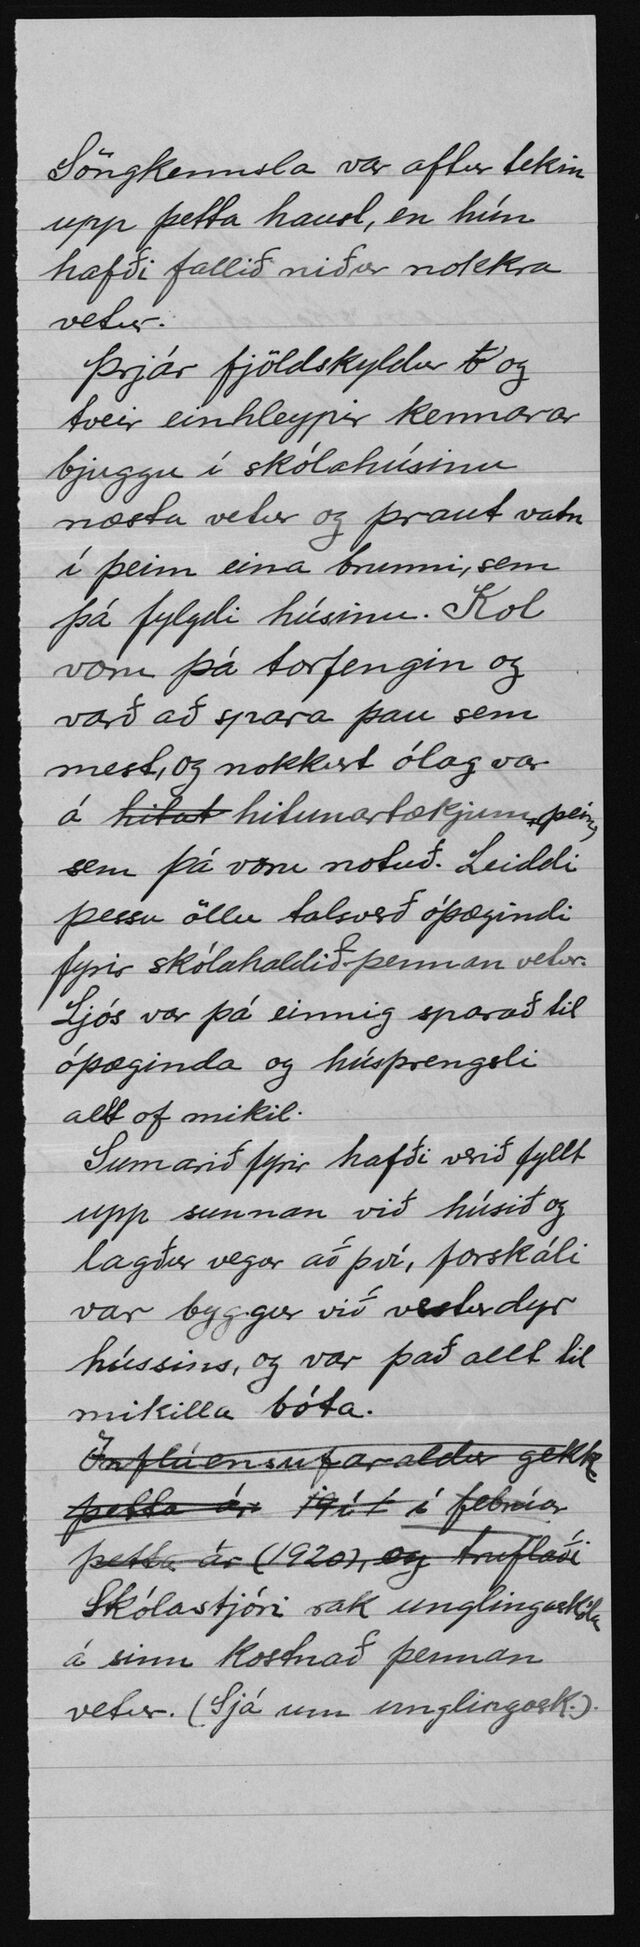 Söngkennsla var aftur tekin
upp þetta haust, en hún
hafði fallið niður nokkra
vetur.
Þrjár fjöldskyldur og
tveir einhleypir kennarar
bjuggu í skólahúsinu
næsta vetur og þraut vatn
í þeim eina brunni, sem
þá fylgdi húsinu. Kol
voru þá torfengin og
varð að spara þau sem
mest, og nokkurt ólag var
á hitat hitunartækjum þeim,
sem þá voru notuð. Leiddi
þessu öllu talsverð óþægindi
fyrir skólahaldið þennan vetur.
Ljós var þá einnig sparað til
óþæginda og húsþrengsli
allt of mikil.
Sumarið fyrir hafði verið fyllt
upp sunnan við húsið og
lagður vegur að því, forskáli
var byggur við vesturdyr
hússins, og var það allt til
mikilla bóta.
Önflúensufaraldur gekk
þetta ár í febrúar
þetta ár (1920), og truflaði
Skólastjóri rak unglingaskóla
á sinn kostnað þennan
vetur. (Sjá um unglingask.).